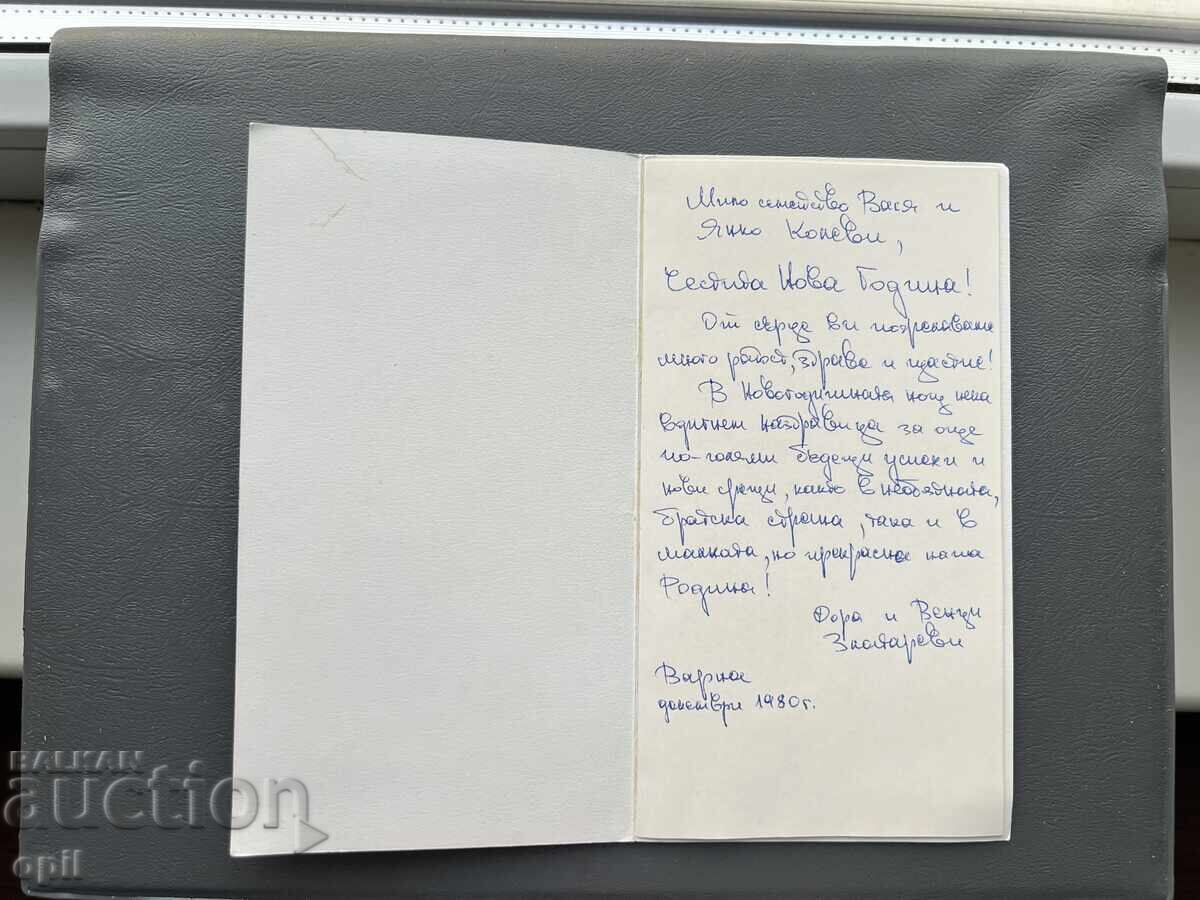 Мило семейство Вася и
Янко Колеви,
Честита Нова Година!
От сърце ви пожелаваме
много радост, здраве и щастие!
В Новогодишната нощ нека
вдигнем наздравица за още
по-големи бъдещи успехи и
нови срещи, както в необятната,
братска страна, така и в
малката, но прекрасна наша
Родина!
Дора и Венци
Златареви
Варна
декември 1980г.
BALKAN
auction
opil